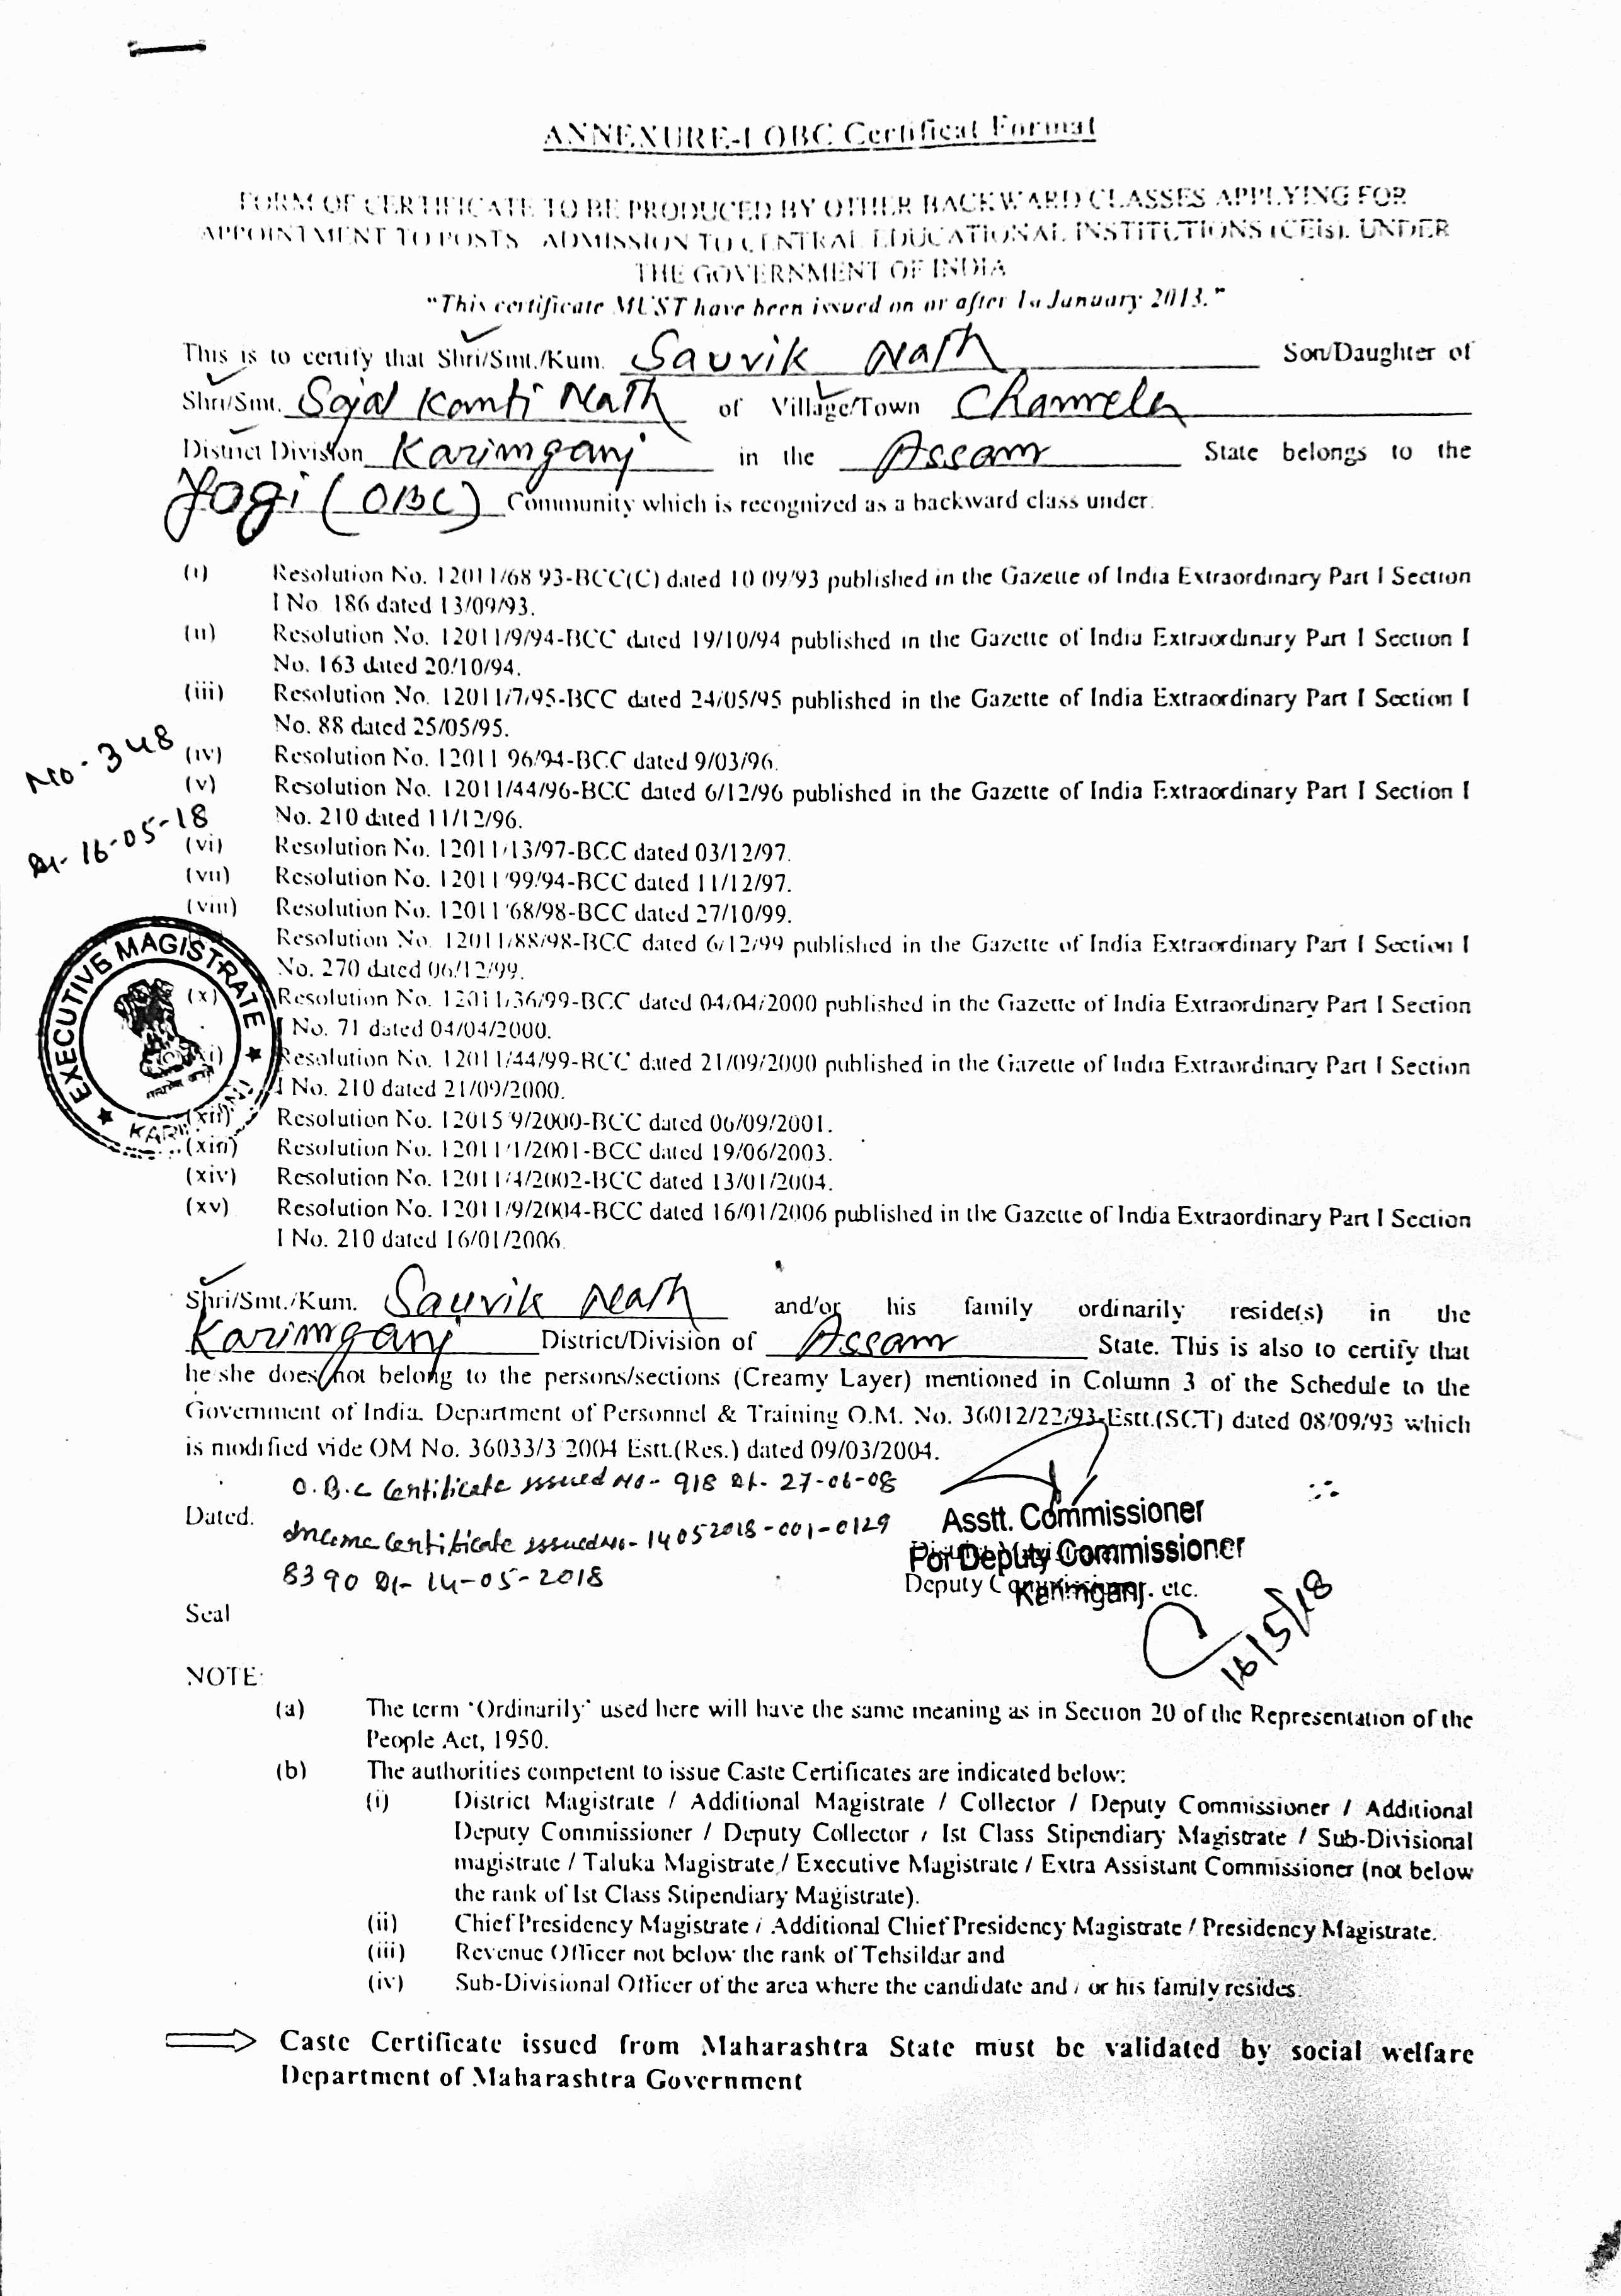 ANNEXURE-I OBC Certificat Format
FORM OF CERTIFICATE TO BE PRODUCED BY OTHER BACKWARD CLASSES APPLYING FOR
APPOINTMENT TO POSTS ADMISSION TO CENTRAL EDUCATIONAL INSTITUTIONS (CEIs), UNDER
THE GOVERNMENT OF INDIA
"This certificate MUST have been issued on or after 1a January 2013."
This is to certify that Shri/Smt./Kum. Sauvik Nath Son/Daughter of
Shri/Smt. Sajal Kanti Nath of Village/Town Chamela
District Division Karimganj in the Assam State belongs to the
Yogi (OBC) Community which is recognized as a backward class under:
(i) Resolution No. 12011/68 93-BCC(C) dated 10 09/93 published in the Gazette of India Extraordinary Part I Section
I No. 186 dated 13/09/93.
(ii) Resolution No. 12011/9/94-BCC dated 19/10/94 published in the Gazette of India Extraordinary Part I Section I
No. 163 dated 20/10/94.
(iii) Resolution No. 12011/7/95-BCC dated 24/05/95 published in the Gazette of India Extraordinary Part I Section I
No. 88 dated 25/05/95.
No-348
(iv) Resolution No. 12011 96/94-BCC dated 9/03/96.
(v) Resolution No. 12011/44/96-BCC dated 6/12/96 published in the Gazette of India Extraordinary Part I Section I
No. 210 dated 11/12/96.
Dt- 16-05-18
(vi) Resolution No. 12011/13/97-BCC dated 03/12/97.
(vii) Resolution No. 12011/99/94-BCC dated 11/12/97.
(viii) Resolution No. 12011/68/98-BCC dated 27/10/99.
Resolution No. 12011/88/98-BCC dated 6/12/99 published in the Gazette of India Extraordinary Part I Section I
No. 270 dated 06/12/99.
EXECUTIVE MAGISTRATE
(x) Resolution No. 12011/36/99-BCC dated 04/04/2000 published in the Gazette of India Extraordinary Part I Section
I No. 71 dated 04/04/2000.
Resolution No. 12011/44/99-BCC dated 21/09/2000 published in the Gazette of India Extraordinary Part I Section
I No. 210 dated 21/09/2000.
(xii) Resolution No. 12015/9/2000-BCC dated 06/09/2001.
(xiii) Resolution No. 12011/1/2001-BCC dated 19/06/2003.
(xiv) Resolution No. 12011/4/2002-BCC dated 13/01/2004.
(xv) Resolution No. 12011/9/2004-BCC dated 16/01/2006 published in the Gazette of India Extraordinary Part I Section
I No. 210 dated 16/01/2006.
Shri/Smt./Kum. Sauvik Nath and/or his family ordinarily reside(s) in the
Karimganj District/Division of Assam State. This is also to certify that
he she does not belong to the persons/sections (Creamy Layer) mentioned in Column 3 of the Schedule to the
Government of India. Department of Personnel & Training O.M. No. 36012/22/93-Estt.(SCT) dated 08/09/93 which
is modified vide OM No. 36033/3 2004 Estt.(Res.) dated 09/03/2004.
O.B.C Certificate issued No- 918 Dt- 27-06-08
Dated.
Income Certificate issued No- 14052018-001-0129
8390 Dt- 14-05-2018
Asstt. Commissioner
For Deputy Commissioner
Deputy
Karimganj. etc.
16/5/18
Seal
NOTE:
(a) The term 'Ordinarily' used here will have the same meaning as in Section 20 of the Representation of the
People Act, 1950.
(b) The authorities competent to issue Caste Certificates are indicated below:
(i) District Magistrate / Additional Magistrate / Collector / Deputy Commissioner / Additional
Deputy Commissioner / Deputy Collector / Ist Class Stipendiary Magistrate / Sub-Divisional
magistrate / Taluka Magistrate / Executive Magistrate / Extra Assistant Commissioner (not below
the rank of Ist Class Stipendiary Magistrate).
(ii) Chief Presidency Magistrate / Additional Chief Presidency Magistrate / Presidency Magistrate.
(iii) Revenue Officer not below the rank of Tehsildar and
(iv) Sub-Divisional Officer of the area where the candidate and / or his family resides.
Caste Certificate issued from Maharashtra State must be validated by social welfare
Department of Maharashtra Government